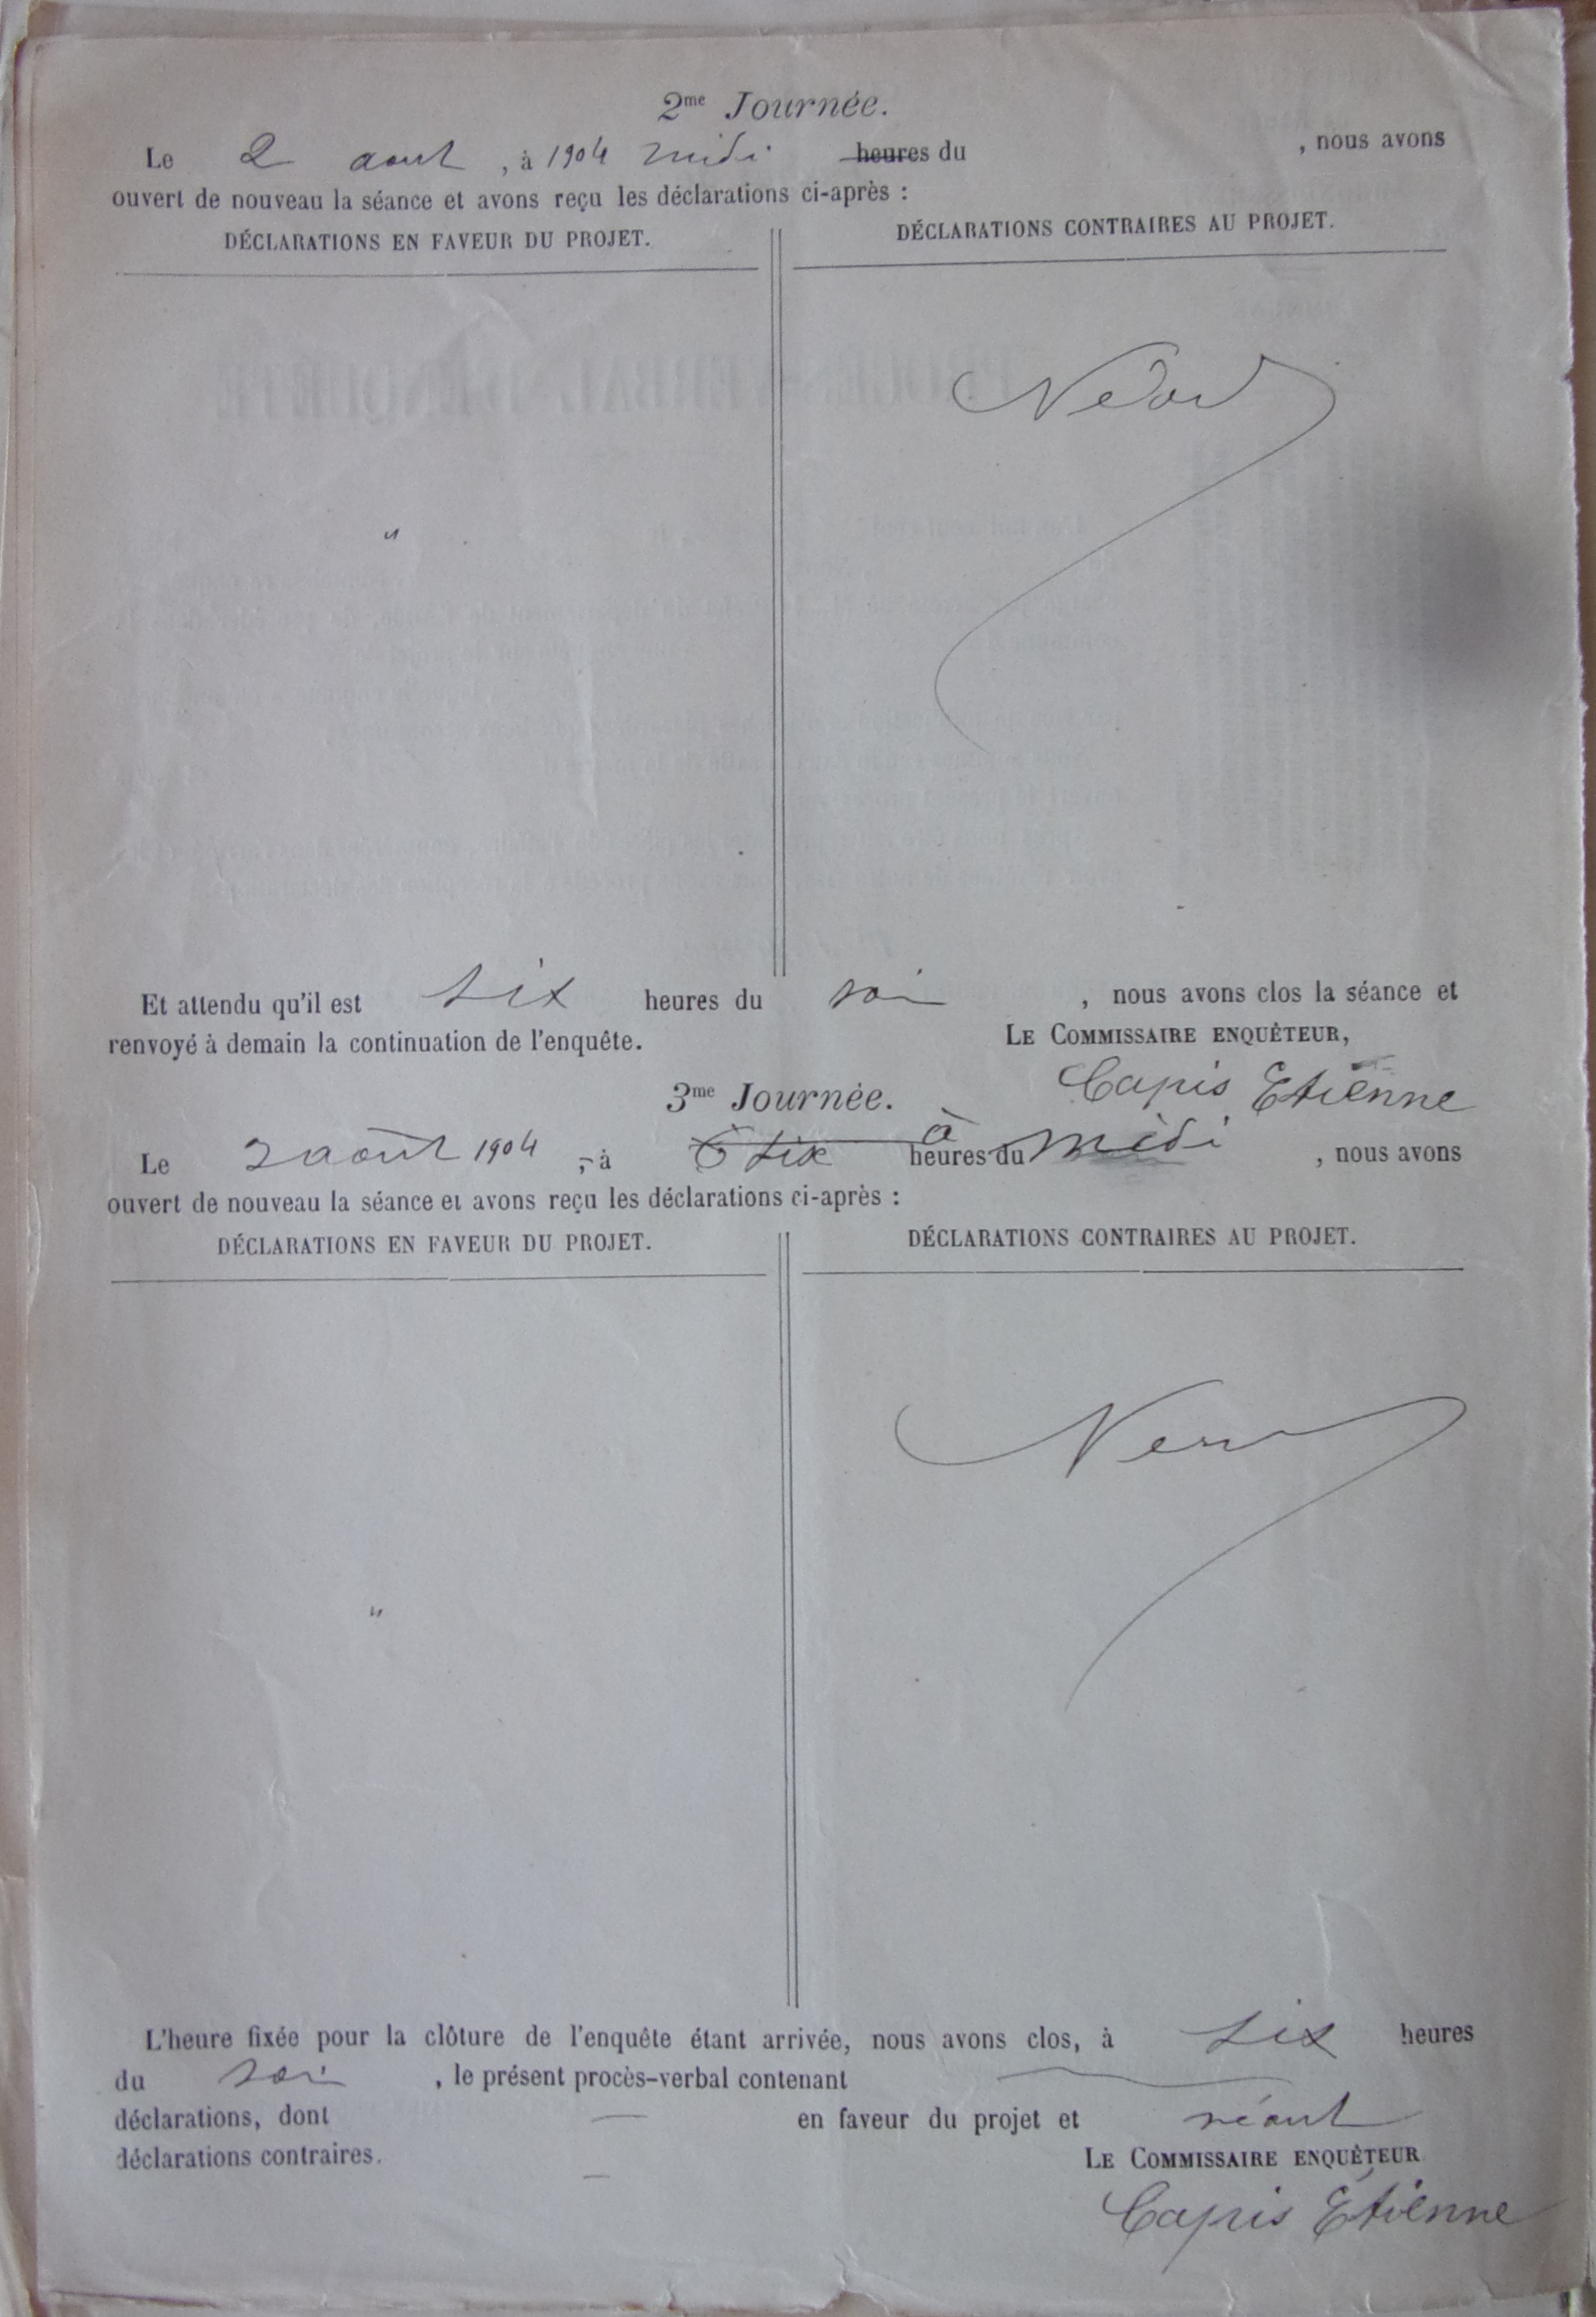 2me Journée.
Le 2 aout , à 1904 midi heures du , nous avons
ouvert de nouveau la séance et avons reçu les déclarations ci-après :
DÉCLARATIONS EN FAVEUR DU PROJET.
DÉCLARATIONS CONTRAIRES AU PROJET.
"
Et attendu qu'il est six heures du soir , nous avons clos la séance et
renvoyé à demain la continuation de l'enquête.
LE COMMISSAIRE ENQUÊTEUR,
Capis Etienne
3me Journée.
Le 2 août 1904 , à 6 six heures du à midi , nous avons
ouvert de nouveau la séance et avons reçu les déclarations ci-après :
DÉCLARATIONS EN FAVEUR DU PROJET.
DÉCLARATIONS CONTRAIRES AU PROJET.
"
L'heure fixée pour la clôture de l'enquête étant arrivée, nous avons clos, à six heures
du soir , le présent procès-verbal contenant
déclarations, dont — en faveur du projet et néant
déclarations contraires. —
LE COMMISSAIRE ENQUÊTEUR
Capis Étienne